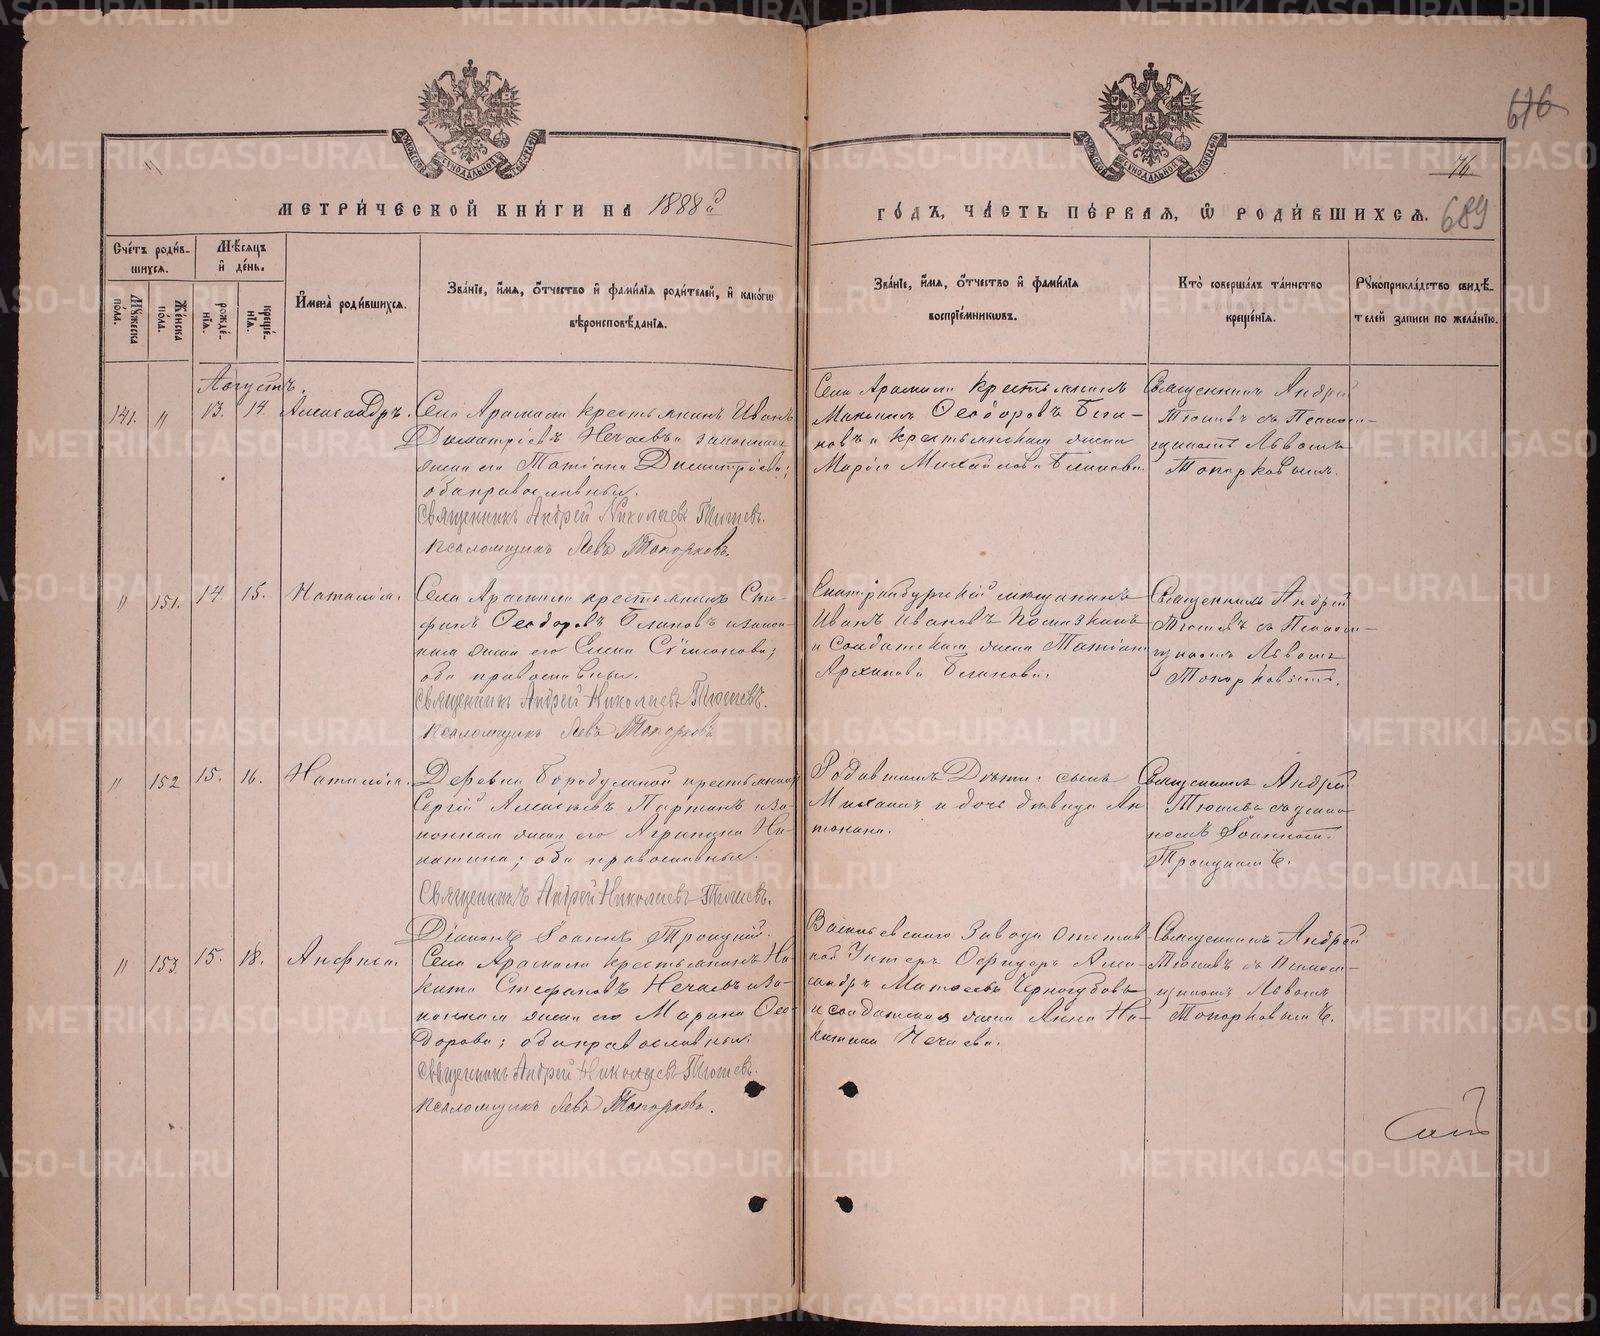 616
76
689
МЕТРИЧЕСКОЙ КНИГИ НА 1888й
ГОДЪ, ЧАСТЬ ПЕРВАЯ, Ѡ РОДИВШИХСЯ.
Счетъ родив-
шихся.
Мѣсяцъ
и день.
Мужеска
пола.
Женска
пола.
рожде-
нія.
креще-
нія.
Имена родившихся.
Званіе, имя, отчество и фамилія родителей, и какогѡ
вѣроисповѣданія.
Званіе, имя, отчество и фамилія
воспріемниковъ.
Кто совершалъ таинство
крещенія.
Рукоприкладство свидѣ-
телей записи по желанію.
Августъ.
141. " 13. 14. Александръ.
Села Арамили крестьянинъ Иванъ
Димитріевъ Нечаевъ и законная
жена его Татіана Димитріева;
оба православные.
Священникъ Андрей Николаевъ Тюшевъ.
Псаломщикъ Левъ Топорковъ.
Села Арамили крестьянинъ
Ѳеодоровъ
новъ и крестьянская жена
Марія Михайлова Блинова.
Священникъ Андрей
Тюшевъ съ Псалом-
щикомъ Львомъ
Топорковымъ.
" 151. 14. 15. Наталія.
Села Арамили крестьянинъ
Ѳеодоровъ Блиновъ и закон-
ная жена его Елена Сѷмеонова;
оба православные.
Священникъ Андрей Николаевъ Тюшевъ.
Псаломщикъ Левъ Топорковъ
Екатеринбургскій мещанинъ
Иванъ Ивановъ
и солдатская жена Татіана
Архипова Блинова.
Священникъ Андрей
Тюшевъ съ Псалом-
щикомъ Львомъ
Топорковымъ.
" 152 15. 16. Наталія.
Деревни Бородулиной крестьянинъ
Сергій Алексѣевъ и за-
конная жена его Агрипина Ни-
китина; оба православные.
Священникъ Андрей Николаевъ Тюшевъ.
Діаконъ Іоаннъ Троицкій.
Родившихъ Дѣти: сынъ
Михаилъ и дочь дѣвица Ан-
тонина.
Священникъ Андрей
Тюшевъ съ діако-
номъ Іоанномъ
Троицкимъ.
" 153. 15. 18. Анфиса.
Села Арамили крестьянинъ Ни-
кита Стефановъ Нечаевъ и за-
конная жена его Марина Ѳео-
дорова; оба православные.
Священникъ Андрей Николаевъ Тюшевъ.
Псаломщикъ Левъ Топорковъ.
Васильевскаго Завода отстав-
ной Унтеръ Офицеръ Алек-
сандръ Матѳеевъ Черногубовъ
и солдатская жена Анна Ни-
китина Нечаева.
Священникъ Андрей
Тюшевъ съ Псалом-
щикомъ Львомъ
Топорковымъ.
METRIKI.GASO-URAL.RU